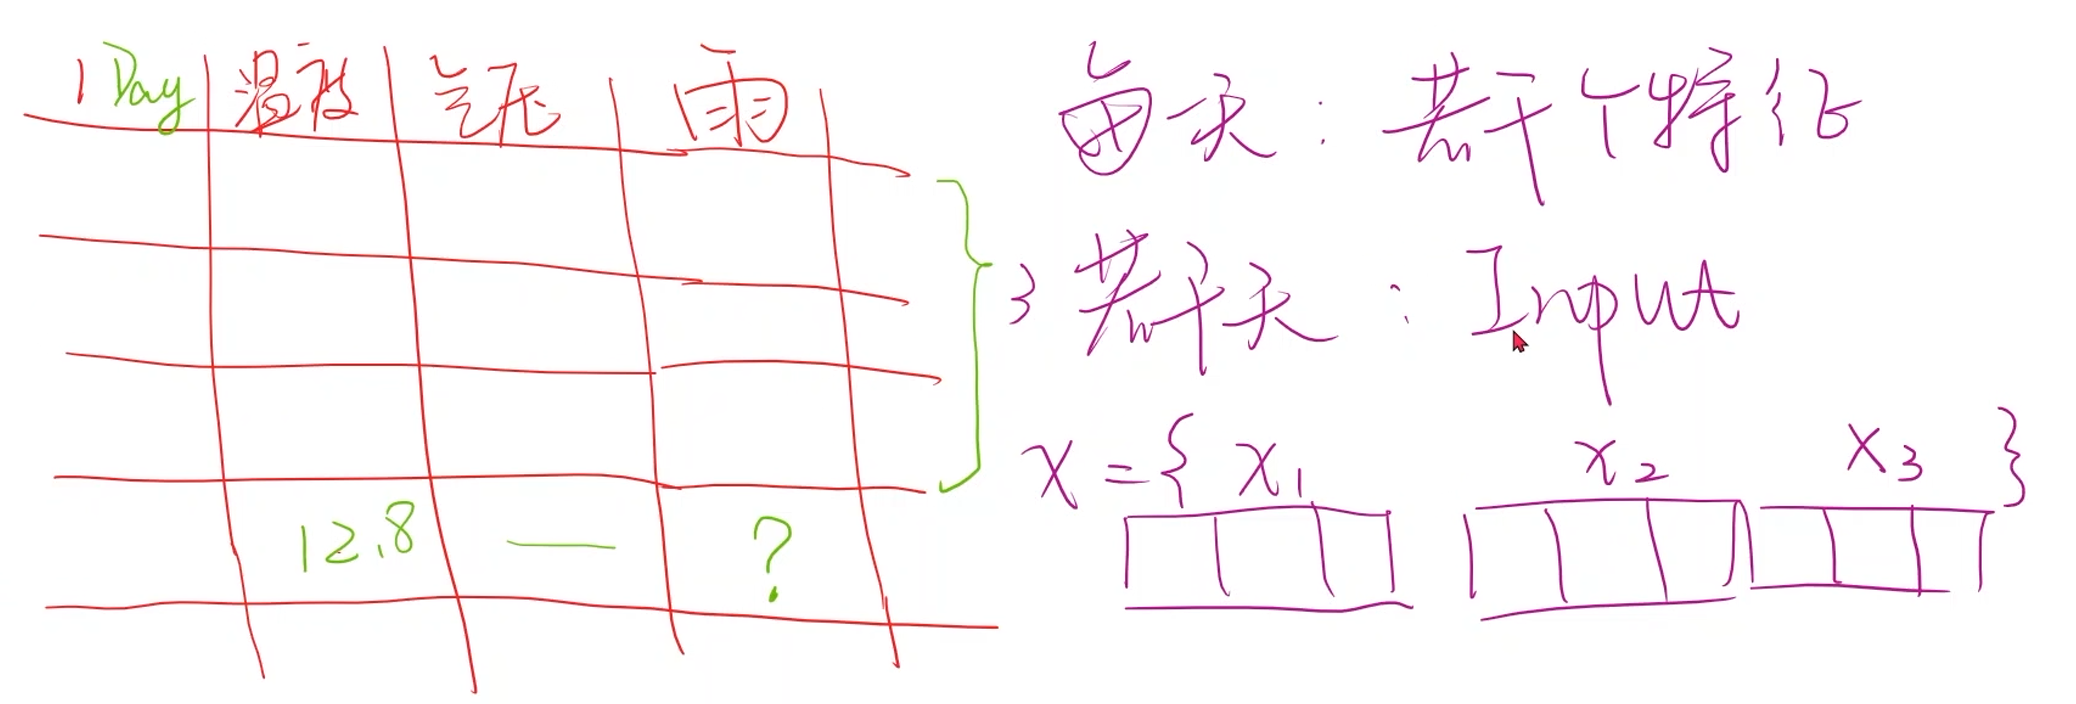 1 Day 温度 气压 雨
12.8 — ?
每天：若干个特征
3 若干天：Input
x = { x1 x2 x3 }